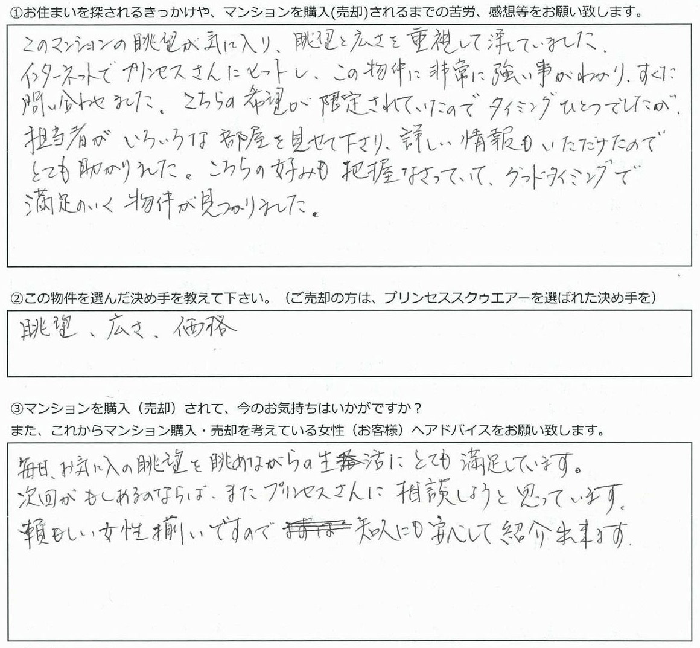 ①お住まいを探されるきっかけや、マンションを購入(売却)されるまでの苦労、感想等をお願い致します。
このマンションの眺望が気に入り、眺望と広さを重視して探していました。
インターネットでプリンセスさんにヒットし、この物件に非常に強い事がわかり、すぐに
問い合わせました。こちらの希望が限定されていたのでタイミングひとつでしたが、
担当者がいろいろな部屋を見せて下さり、詳しい情報もいただけたので
とても助かりました。こちらの好みも把握なさっていて、グッドタイミングで
満足のいく物件が見つかりました。
②この物件を選んだ決め手を教えて下さい。（ご売却の方は、プリンセススクゥエアーを選ばれた決め手を）
眺望、広さ、価格
③マンションを購入（売却）されて、今のお気持ちはいかがですか？
また、これからマンション購入・売却を考えている女性（お客様）へアドバイスをお願い致します。
毎日、お気に入の眺望を眺めながらの生活にとても満足しています。
次回がもしあるのならば、またプリンセスさんに相談しようと思っています。
頼もしい女性揃いですので 知人にも安心して紹介出来ます。